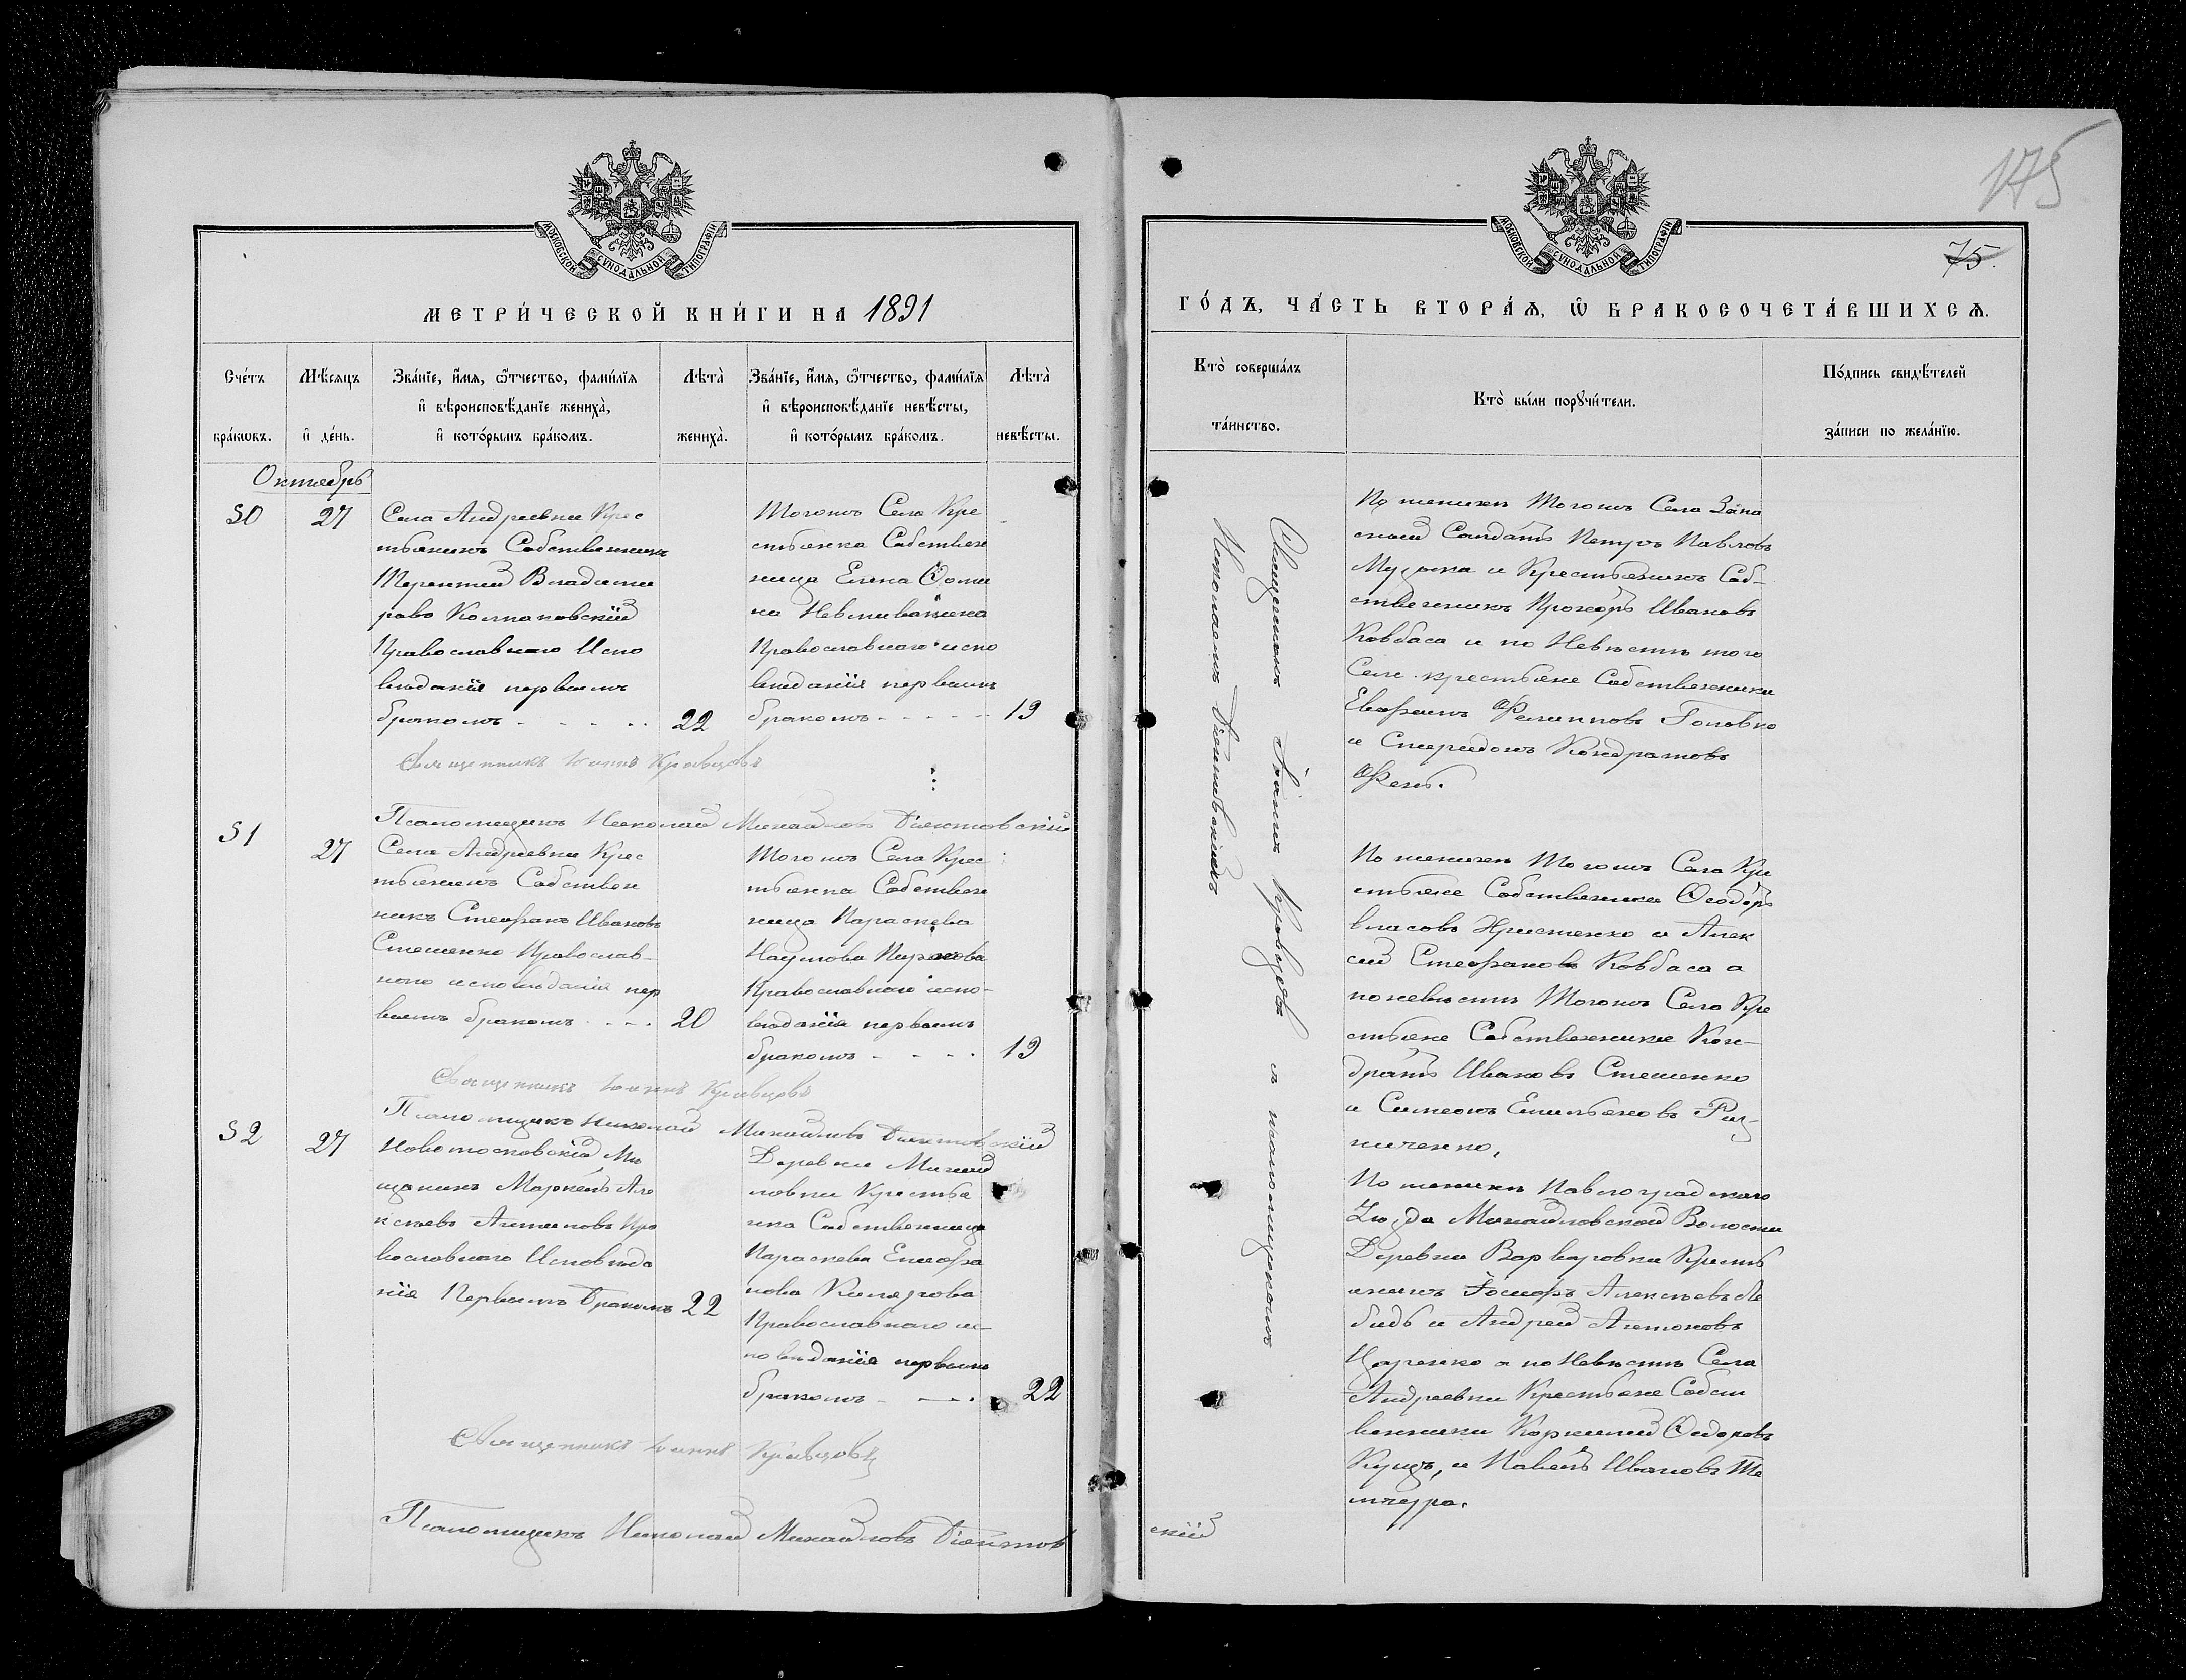 МОСКОВСКОЙ СѴНОДАЛЬНОЙ ТИПОГРАФІИ
МЕТРИ́ЧЕСКОЙ КНИ́ГИ НА 1891
Сче́тъ бра́кѡвъ.
Мѣ́сяцъ и҆ де́нь.
Зва́нїе, и҆́мя, ѻ҆́тчество, фами́лїя и҆ вѣроисповѣ́данїе жениха̀, и҆ кото́рымъ бра́комъ.
Лѣта̀ жениха̀.
Зва́нїе, и҆́мя, ѻ҆́тчество, фами́лїя и҆ вѣроисповѣ́данїе невѣ́сты, и҆ кото́рымъ бра́комъ.
Лѣта̀ невѣ́сты.
Октябрь
50
27
Села Андреевки Крес
тьянинъ Собственникъ
Терентий Владими
ровъ Колпаковскій
Православнаго Испо
вѣданія первымъ
бракомъ
22
Тогожъ Села Кре
стьянка Собствен
ница Елена Ѳоми
на Невмивакина
Православнаго испо
вѣданія первымъ
бракомъ
19
Священникъ Іоаннъ Кравцовъ
Псаломщикъ Николай Михайловъ Діектовскій
51
27
Села Андреевки Крес
тьянинъ Собствен
никъ Стефанъ Ивановъ
Стешенко Православ-
наго исповѣданія пер
вымъ бракомъ
20
Тогожъ Села Крес
тьянка Собствен
ница Параскева
Наумова
Православнаго испо-
вѣданія первымъ
бракомъ
19
Священникъ Іоаннъ Кравцовъ
Псаломщикъ Николай Михайловъ Діектовскій
52
27
Новомосковскій Мѣ
щанинъ Маркелъ Але
ксѣевъ Антиповъ Пра
вославнаго Исповѣда
нія Первымъ Бракомъ
22
Деревни Михай
ловки Крестья
нка Собственница
Параскева Епифа
нова
Православнаго ис
повѣданія первымъ
бракомъ
22
Священникъ Іоаннъ Кравцовъ
Псаломщикъ Николай Михайловъ Діектов
скій
175
75.
МОСКОВСКОЙ СѴНОДАЛЬНОЙ ТИПОГРАФІИ
ГО́ДЪ, ЧА́СТЬ ВТОРА́Я, Ѽ БРАКОСОЧЕТА́ВШИХСЯ.
Кто̀ соверша́лъ та́инство.
Кто̀ бы́ли порꙋчи́тели.
По́дпись свидѣ́телей за́писи по жела́нїю.
Священникъ Іоаннъ Кравцовъ съ псаломщикомъ
Николаемъ Діектовскимъ
По женихѣ Тогожъ Села Запа
сный Солдатъ Петръ Павловъ
Музыка и Крестьянинъ Соб-
ственникъ Прохоръ Ивановъ
Ковбаса и по Невѣстѣ того
Села крестьяне Собственники
Евфимъ Филипповъ Головко
и Спиридонъ Кондратовъ
По женихѣ Тогожъ Села Кре
стьяне Собственники Ѳеодоръ
Власовъ Христенко и Алек
сѣй Стефановъ Ковбаса а
по невѣстѣ Тогожъ Села Кре
стьяне Собственники Кон-
дратъ Ивановъ Стешенко
и Симеонъ Емельяновъ Риз-
ниченко,
По женихѣ Павлоградскаго
Уѣзда Михайловской Волости
Деревни Варваровки Кресть
янинъ Іосифъ Алексѣевъ Ле
бидь и Андрей Антоновъ
Царенко а по Невѣстѣ Села
Андреевки Крестьяне Собст
венники Корнилий Ѳедоровъ
Куцъ, и Павелъ Ивановъ